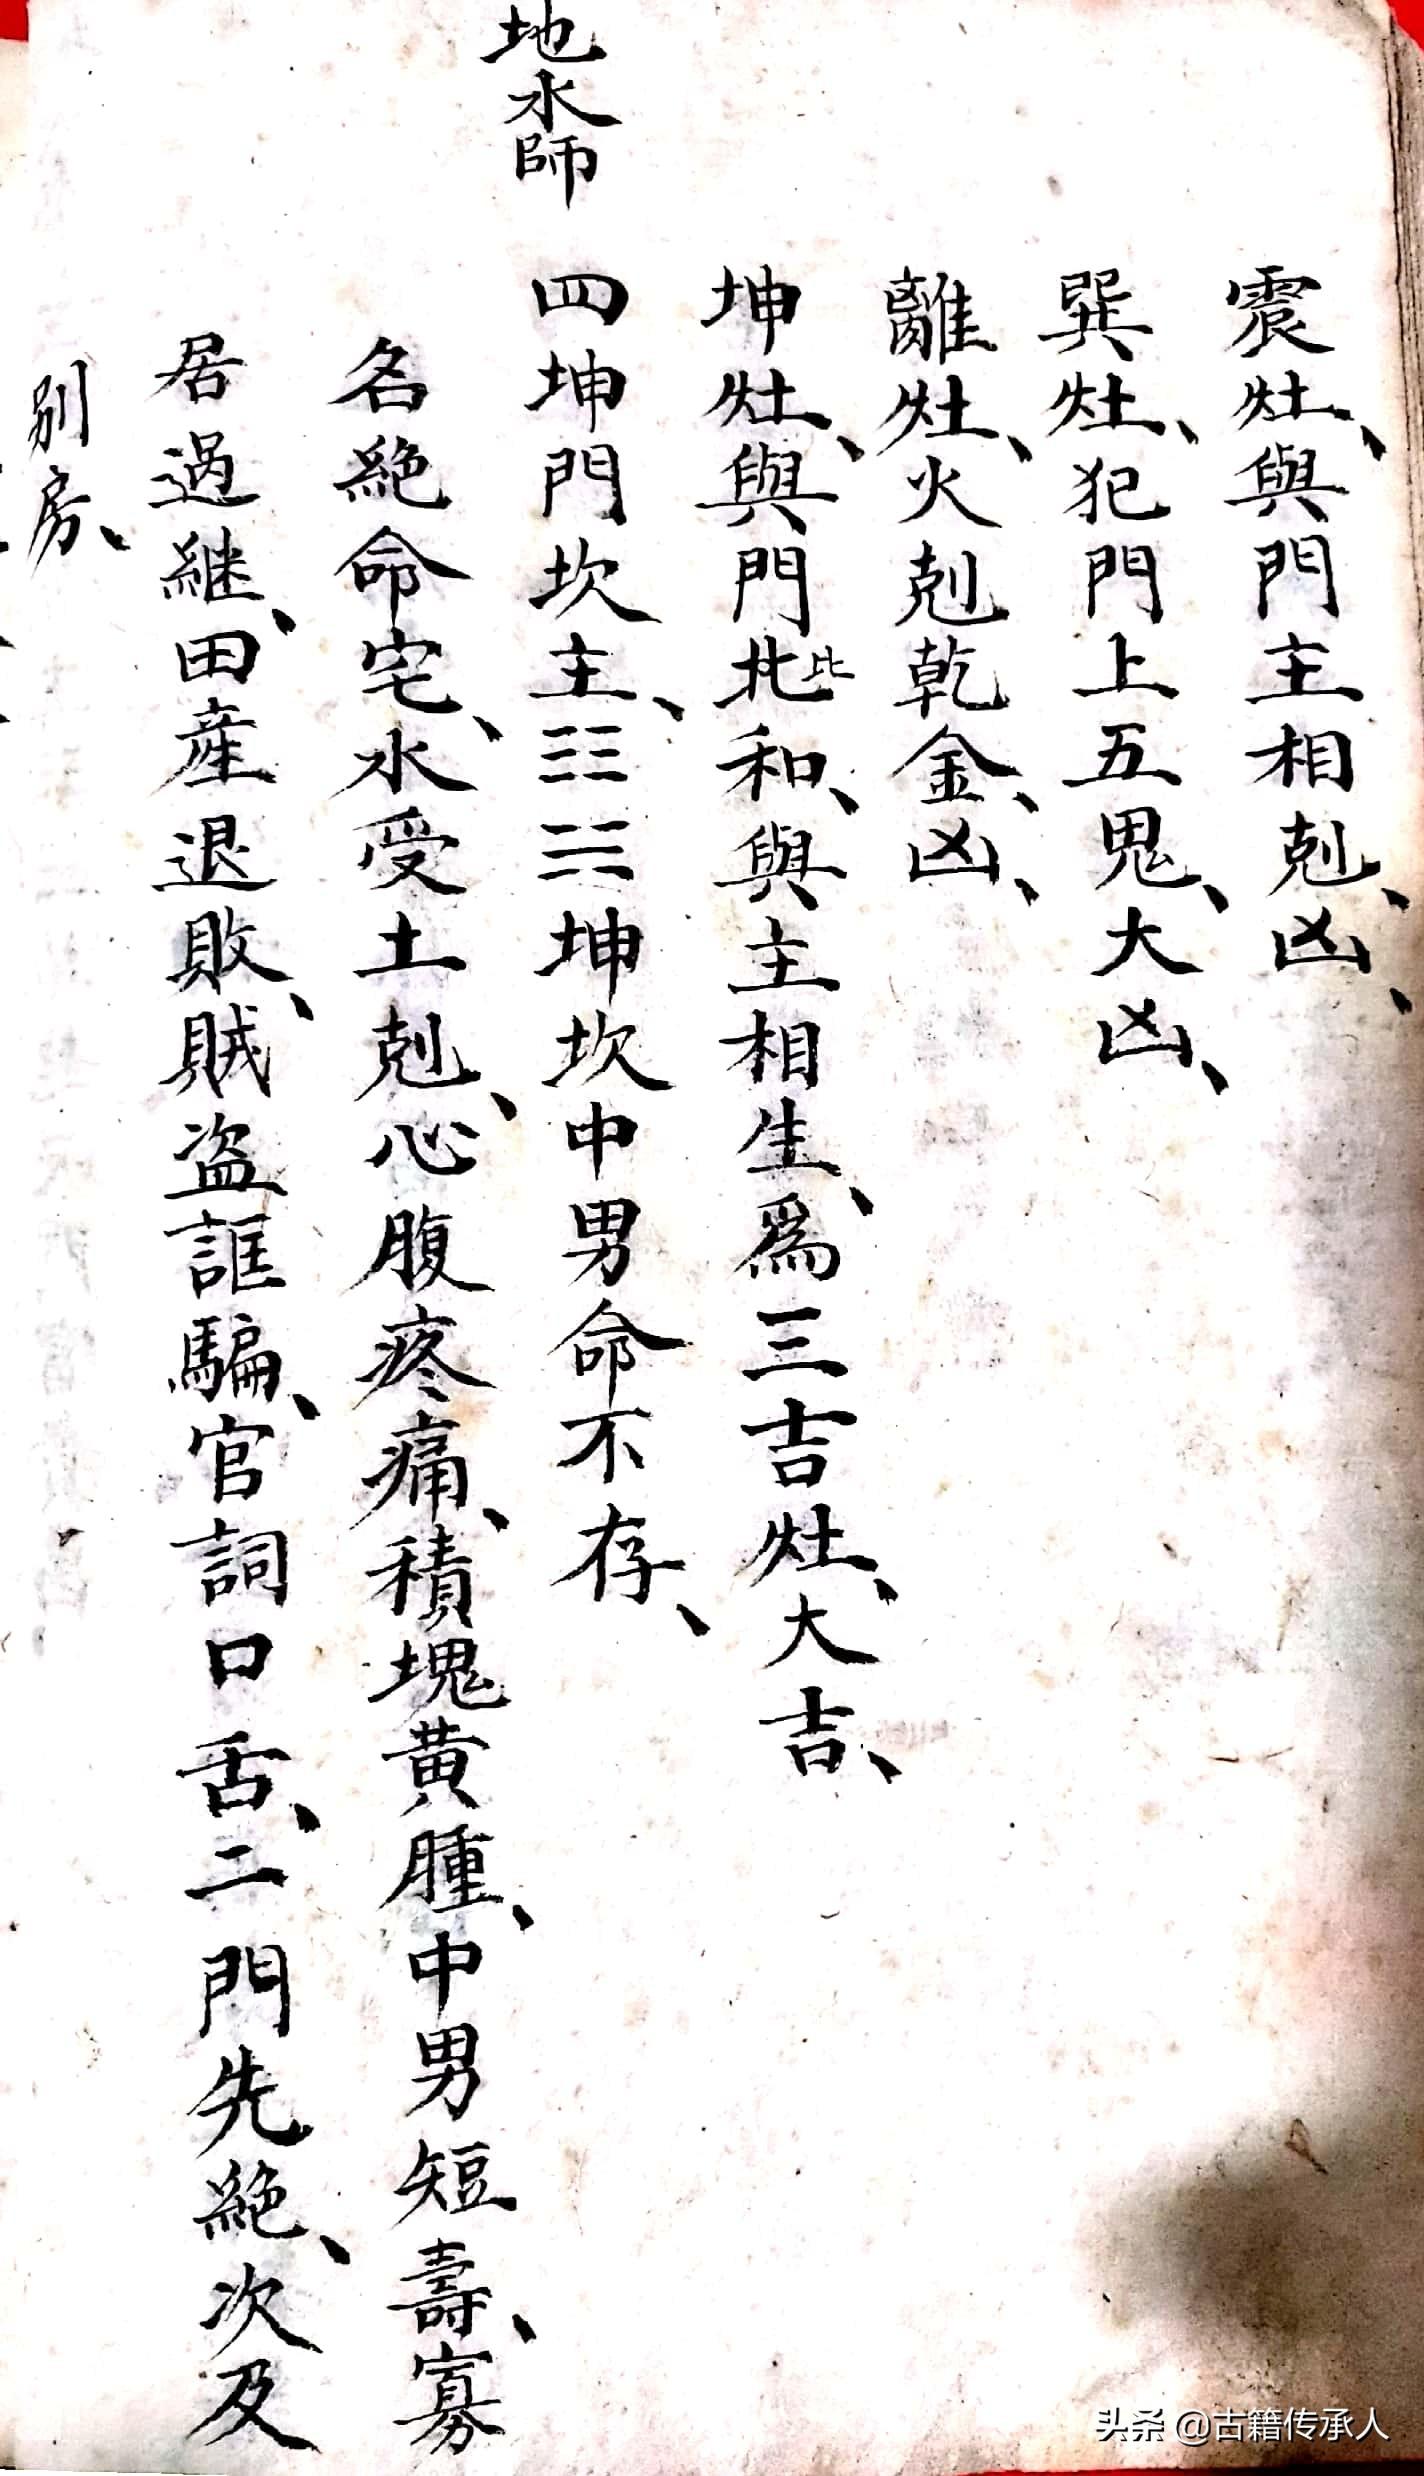 震灶、與門主相剋、凶、
巽灶、犯門上五鬼、大凶、
離灶、火剋乾金、凶、
坤灶、與門北比和、與主相生、爲三吉灶、大吉、
地水師
四坤門坎主、☷☵坤坎中男命不存、
名絶命宅、水受土剋、心腹疼痛、積塊黄腫、中男短壽、寡
居過継、田産退敗、賊盗誆騙、官詞口舌、二門先絶、次及
别房、
头条 @古籍传承人